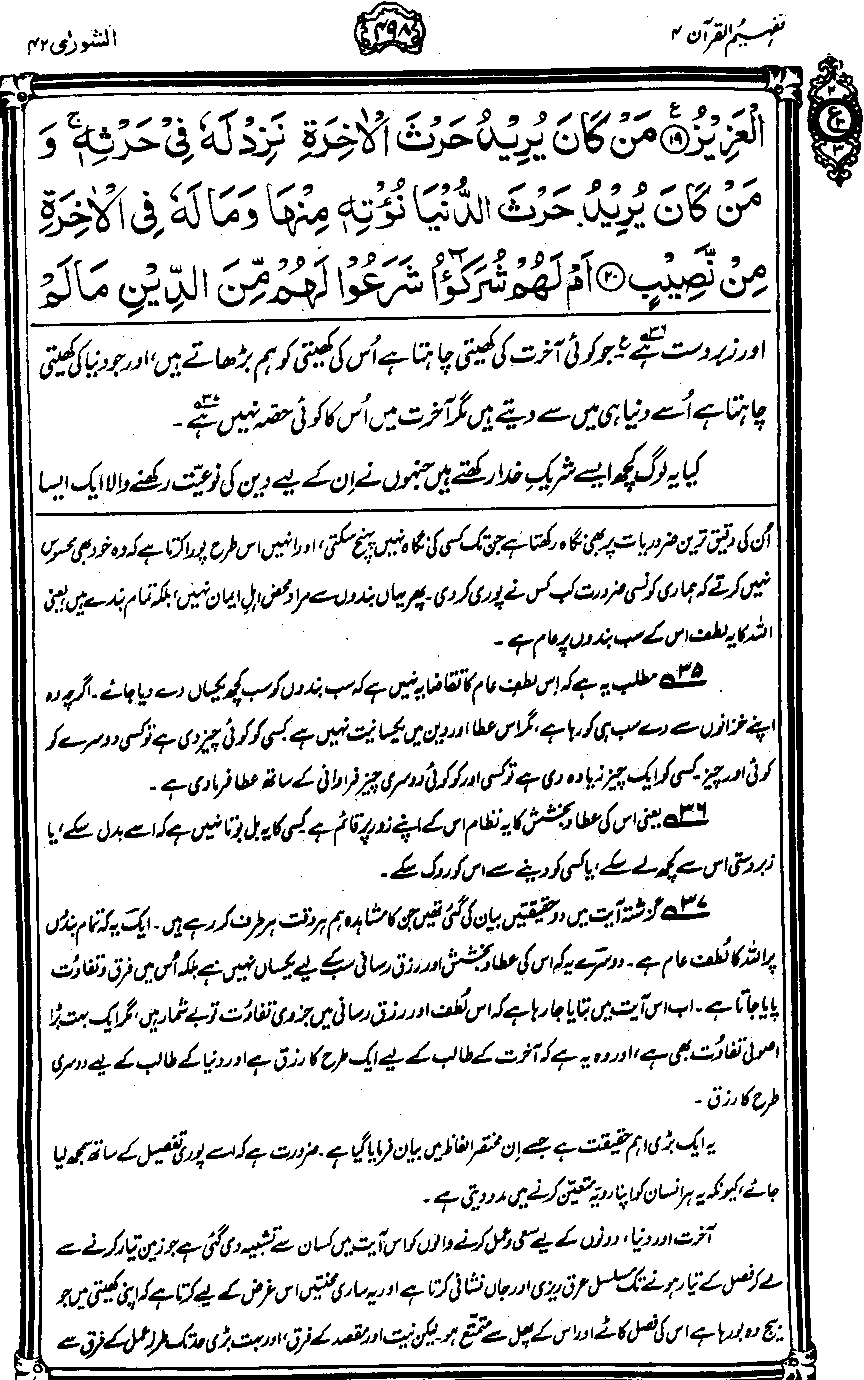 تفہیم القرآن ۴
۴۹۸
الشورٰی ۴۲
الْعَزِيْزُ ﴿۱۹﴾ مَنْ كَانَ يُرِيْدُ حَرْثَ الْاٰخِرَةِ نَزِدْ لَهٗ فِيْ حَرْثِهٖ ۚ وَ
مَنْ كَانَ يُرِيْدُ حَرْثَ الدُّنْيَا نُؤْتِهٖ مِنْهَا وَمَا لَهٗ فِي الْاٰخِرَةِ
مِنْ نَّصِيْبٍ ﴿۲۰﴾ اَمْ لَهُمْ شُرَكٰٓؤُا شَرَعُوْا لَهُمْ مِّنَ الدِّيْنِ مَا لَمْ
اور زبردست ہے۳۶ ع جو کوئی آخرت کی کھیتی چاہتا ہے اُس کی کھیتی کو ہم بڑھاتے ہیں، اور جو دنیا کی کھیتی
چاہتا ہے اُسے دنیا ہی میں سے دیتے ہیں مگر آخرت میں اُس کا کوئی حصّہ نہیں ہے۳۷۔
کیا یہ لوگ کچھ ایسے شریکِ خدا رکھتے ہیں جنہوں نے اِن کے لیے دین کی نوعیّت رکھنے والا ایک ایسا
اُن کی دقیق ترین ضروریات پر بھی نگاہ رکھتا ہے جن تک کسی کی نگاہ نہیں پہنچ سکتی، اور انہیں اس طرح پورا کرتا ہے کہ وہ خود بھی محسوس
نہیں کرتے کہ ہماری کونسی ضرورت کب کس نے پوری کر دی۔ پھر یہاں بندوں سے مراد محض اہلِ ایمان نہیں، بلکہ تمام بندے ہیں یعنی
اللہ کا یہ لطف اس کے سب بندوں پر عام ہے۔
۳۵ مطلب یہ ہے کہ اِس لطفِ عام کا تقاضا یہ نہیں ہے کہ سب بندوں کو سب کچھ یکساں دے دیا جائے۔ اگرچہ وہ
اپنے خزانوں سے دے سب ہی کو رہا ہے، مگر اس عطا اور دین میں یکسانیت نہیں ہے۔ کسی کو کوئی چیز دی ہے تو کسی دوسرے کو
کوئی اور چیز۔ کسی کو ایک چیز زیادہ دی ہے تو کسی اور کو کوئی دوسری چیز فراوانی کے ساتھ عطا فرما دی ہے۔
۳۶ یعنی اس کی عطا و بخشش کا یہ نظام اس کے اپنے زور پر قائم ہے کسی کا یہ بل بوتا نہیں ہے کہ اسے بدل سکے، یا
زبردستی اس سے کچھ لے سکے، یا کسی کو دینے سے اس کو روک سکے۔
۳۷ گزشتہ آیت میں دو حقیقتیں بیان کی گئی تھیں جن کا مشاہدہ ہم ہر وقت ہر طرف کر رہے ہیں۔ ایک یہ کہ تمام بندوں
پر اللہ کا لُطف عام ہے۔ دوسرے یہ کہ اس کی عطا و بخشش اور رزق رسانی سب کے لیے یکساں نہیں ہے بلکہ اُس میں فرق و تفاوُت
پایا جاتا ہے۔ اب اس آیت میں بتایا جا رہا ہے کہ اس لُطف اور رزق رسانی میں جزوی تفاوُت تو بے شمار ہیں، مگر ایک بہت بڑا
اصولی تفاوُت بھی ہے، اور وہ یہ ہے کہ آخرت کے طالب کے لیے ایک طرح کا رزق ہے اور دنیا کے طالب کے لیے دوسری
طرح کا رزق۔
یہ ایک بڑی اہم حقیقت ہے جسے اِن مختصر الفاظ میں بیان فرمایا گیا ہے۔ ضرورت ہے کہ اسے پوری تفصیل کے ساتھ سمجھ لیا
جائے، کیونکہ یہ ہر انسان کو اپنا رویّہ متعیّن کرنے میں مدد دیتی ہے۔
آخرت اور دنیا، دونوں کے لیے سعی و عمل کرنے والوں کو اس آیت میں کسان سے تشبیہ دی گئی ہے جو زمین تیار کرنے سے
لے کر فصل کے تیار ہونے تک مسلسل عرق ریزی اور جاں فشانی کرتا ہے اور یہ ساری محنتیں اس غرض کے لیے کرتا ہے کہ اپنی کھیتی میں جو
بیج وہ بو رہا ہے اس کی فصل کاٹے اور اس کے پھل سے متمتّع ہو۔ لیکن نیت اور مقصد کے فرق، اور بہت بڑی حد تک طرزِ عمل کے فرق سے